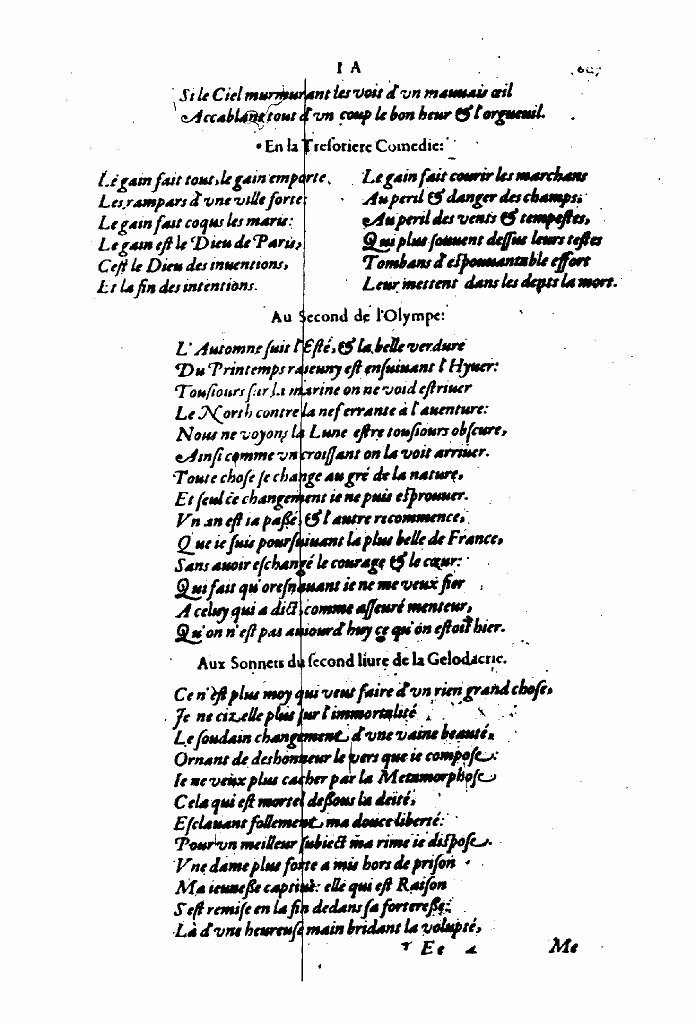 I A 607
Si le Ciel murmurant les voit d'vn mauuais œil
Accablant tout d'vn coup le bon heur & l'orgueil.
En la Tresoriere Comedie:
Le gain fait tout, le gain emporte
Les rampars d'vne ville forte:
Le gain fait coqus les maris:
Le gain est le Dieu de Paris,
C'est le Dieu des inuentions,
Et la fin des intentions.
Le gain fait courir les marchans
Au peril & danger des champs:
Au peril des vents & tempestes,
Qui plus souuent dessus leurs testes
Tombans d'espouuantable effort
Leur mettent dans les depts la mort.
Au Second de l'Olympe:
L'Automne suit l'Esté, & la belle verdure
Du Printemps raieuny est ensuiuant l'Hyuer:
Tousiours sur la marine on ne void estriuer
Le North contre la nef errante à l'auenture:
Nous ne voyons la Lune estre tousiours obscure,
Ainsi comme vn croissant on la voit arriuer.
Toute chose se change au gré de la nature,
Et seul ce changement ie ne puis esprouuer.
Vn an est ia passé, & l'autre recommence,
Que ie suis poursuiuant la plus belle de France,
Sans auoir eschangé le courage & le cœur:
Qui fait qu'oresnauant ie ne me veux fier
A celuy qui a dict, comme asseuré menteur,
Qu'on n'est pas auiourd'huy ce qu'on estoit hier.
Aux Sonnets du second liure de la Gelodacrie.
Ce n'est plus moy qui veut faire d'vn rien grand chose,
Je ne cizelle plus sur l'immortalité
Le soudain changement d'vne vaine beauté,
Ornant de deshonneur le vers que ie compose:
Ie ne veux plus cacher par la Metamorphose
Cela qui est mortel dessous la deité,
Esclauant follement ma douce liberté:
Pour vn meilleur subiect ma rime ie dispose.
Vne dame plus forte a mis hors de prison
Ma ieunesse captiue: elle qui est Raison
S'est remise en la fin dedans sa forteresse:
Là d'vne heureuse main bridant la volupté,
Ee 4 Me